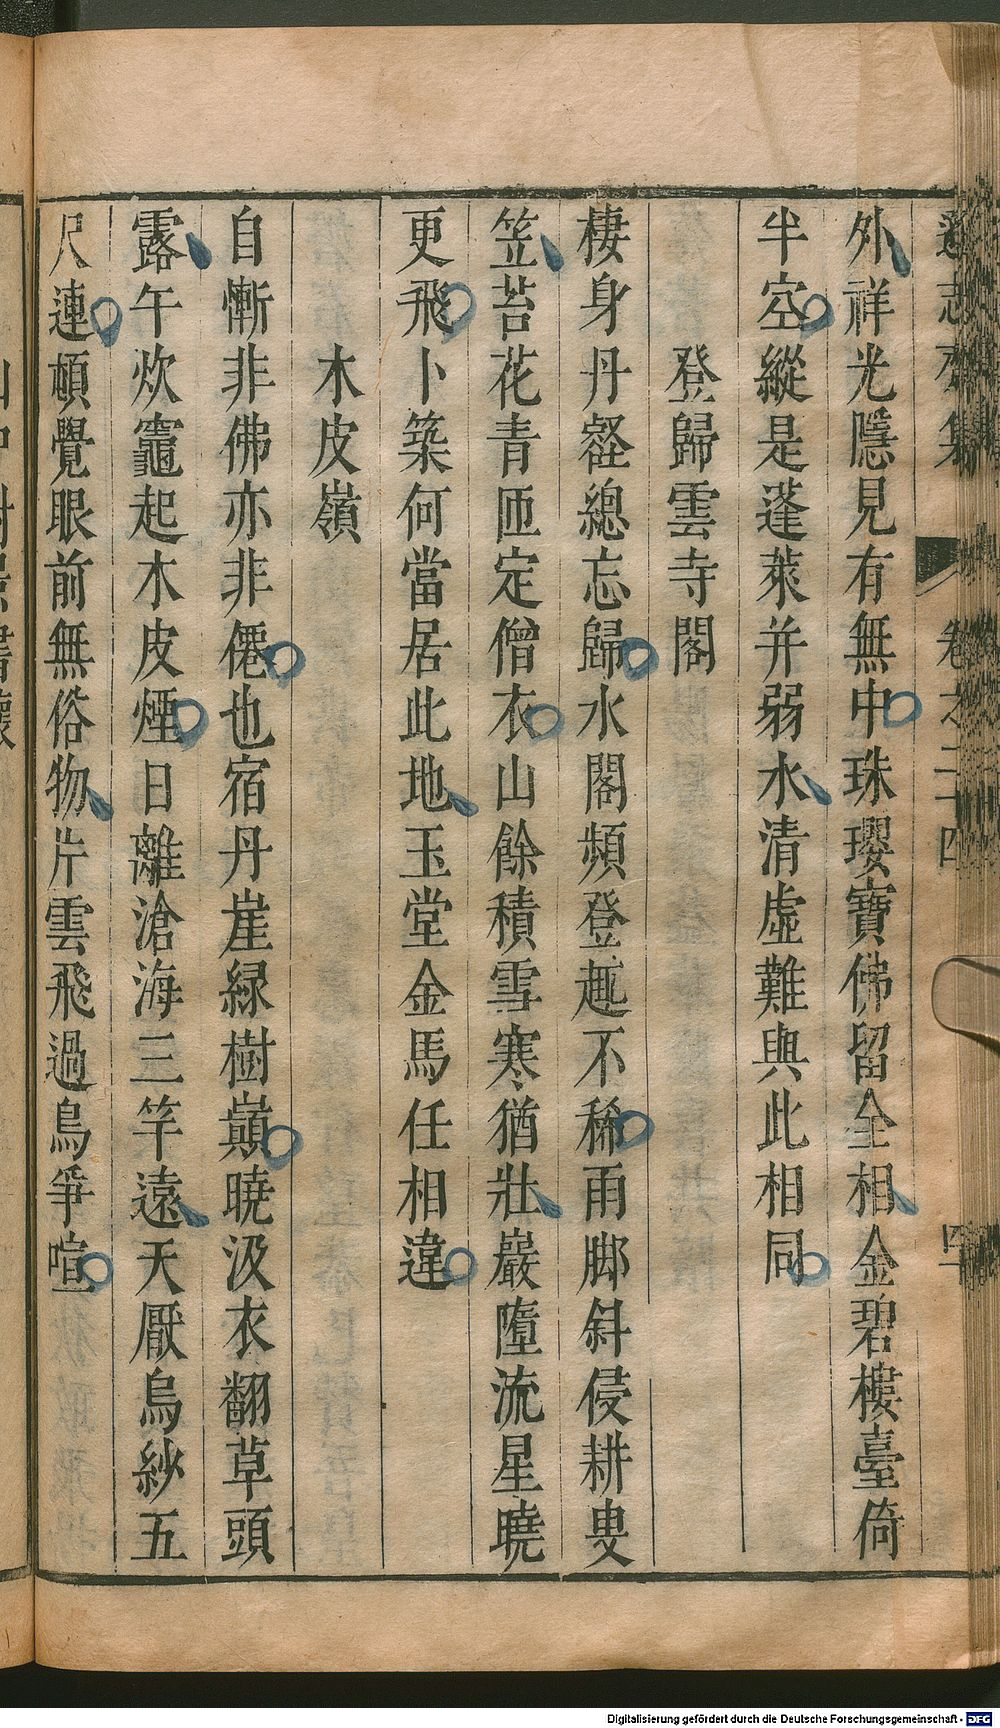 遜志齋集 卷之二十四 四
外祥光隱見有無中珠瓔寶佛留全相金碧樓臺倚
半空縱是蓬萊并弱水清虛難與此相同
登歸雲寺閣
棲身丹壑總忘歸水閣頻登趣不稀雨脚斜侵耕叟
笠苔花青匝定僧衣山餘積雪寒猶壯巖墮流星曉
更飛卜築何當居此地玉堂金馬任相違
木皮嶺
自慚非佛亦非僊也宿丹崖緑樹巔曉汲衣翻草頭
露午炊竈起木皮煙日離滄海三竿遠天厭烏紗五
尺連頓覺眼前無俗物片雲飛過鳥爭喧
Digitalisierung gefördert durch die Deutsche Forschungsgemeinschaft - DFG